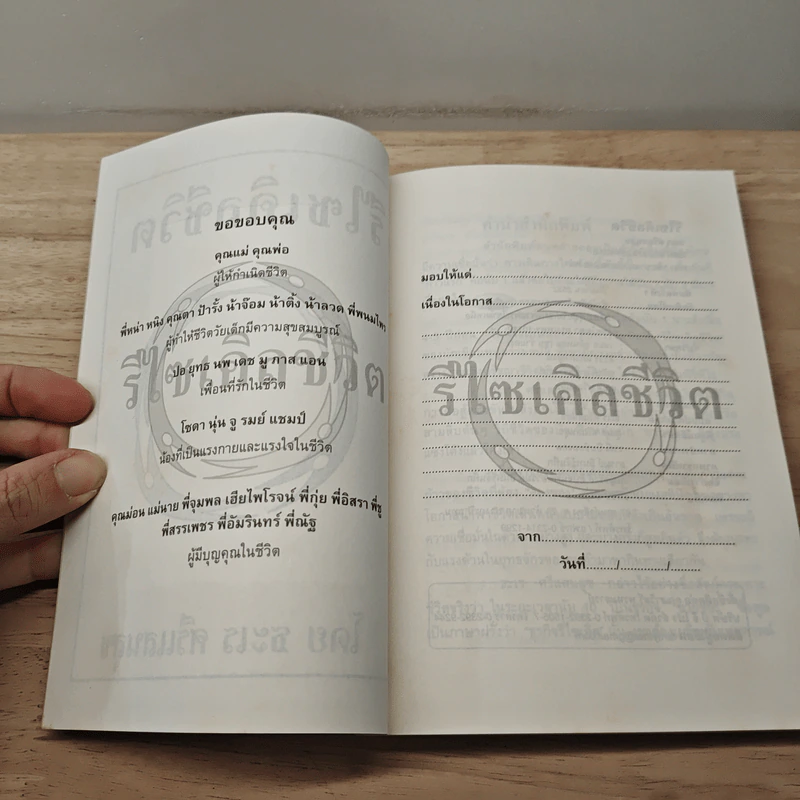 ขอขอบคุณ
คุณแม่ คุณพ่อ
ผู้ให้กำเนิดชีวิต
พี่หน่า หนิง คุณตา ป้ารั้ง น้าจ๊อม น้าติ้ง น้าลวด พี่พนมไพร
ผู้ทำให้ชีวิตวัยเด็กมีความสุขสมบูรณ์
ป๋อ ยุทธ นพ เดช มู ภาส แอน
เพื่อนที่รักในชีวิต
โซดา นุ่น จู รมย์ แชมป์
น้องที่เป็นแรงกายและแรงใจในชีวิต
คุณม่อน แม่นาย พี่จุมพล เฮียไพโรจน์ พี่กุ่ย พี่อิสรา พี่ชู
พี่สรรเพชร พี่อัมรินทร์ พี่ณัฐ
ผู้มีบุญคุณในชีวิต
รีไซเคิลชีวิต
มอบให้แด่
เนื่องในโอกาส
รีไซเคิลชีวิต
จาก
วันที่ / /